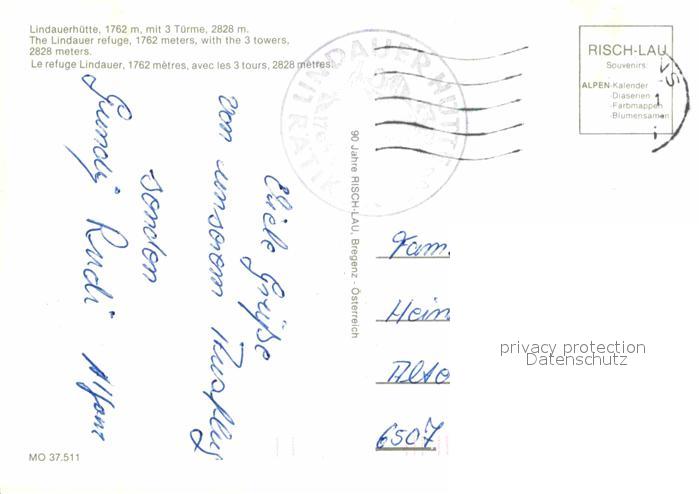 Lindauerhütte, 1762 m, mit 3 Türme, 2828 m.
The Lindauer refuge, 1762 meters, with the 3 towers,
2828 meters.
Le refuge Lindauer, 1762 mètres, avec les 3 tours, 2828 mètres.
LINDAUER HÜTTE
RÄTIK
RISCH-LAU
Souvenirs:
ALPEN-Kalender
-Diaserien
-Farbmappen
-Blumensamen
90 Jahre RISCH-LAU, Bregenz - Österreich
Viele Grüße
von unserem Ausflug
senden
Rudi Alfons
Fam.
Hein
6507
privacy protection
Datenschutz
MO 37.511